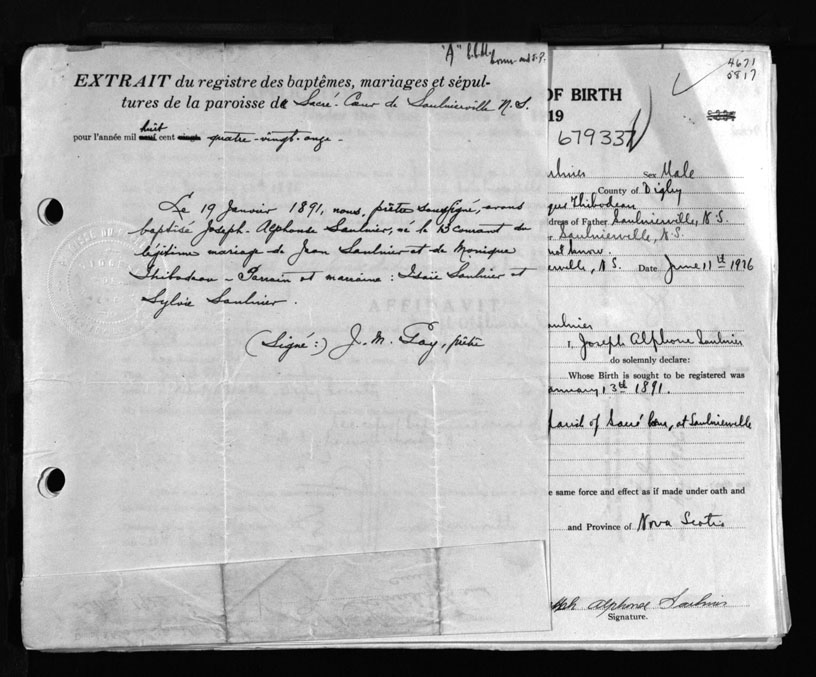 "A"
EXTRAIT du registre des baptêmes, mariages et sépul-
tures de la paroisse de Sacré-Cœur de Saulnierville N.S.
huit
pour l'année mil neuf cent vingt quatre-vingt-onze-
Le 19 Janvier 1891, nous, prêtre soussigné, avons
baptisé Joseph-Alphonse Saulnier, né le 13 courant du
légitime mariage de Jean Saulnier et de Monique
Thibodeau - Parrain et marraine: Isaïe Saulnier et
Sylvie Saulnier.
(Signé:) J. M. Gay, prêtre
AFFIDAVIT
4671
0817
OF BIRTH
19
679337
ulnier Sex Male
County of Digby
que Thibodeau
dress of Father Saulnierville, N.S.
Saulnierville, N.S.
not know.
erville, N.S. Date June 11th 1926
aulnier
I, Joseph Alphonse Saulnier
do solemnly declare:
Whose Birth is sought to be registered was
anuary 13th 1891.
Parish of Sacré Cœur, at Saulnierville
e same force and effect as if made under oath and
and Province of Nova Scotia
Alphonse Saulnier
Signature.